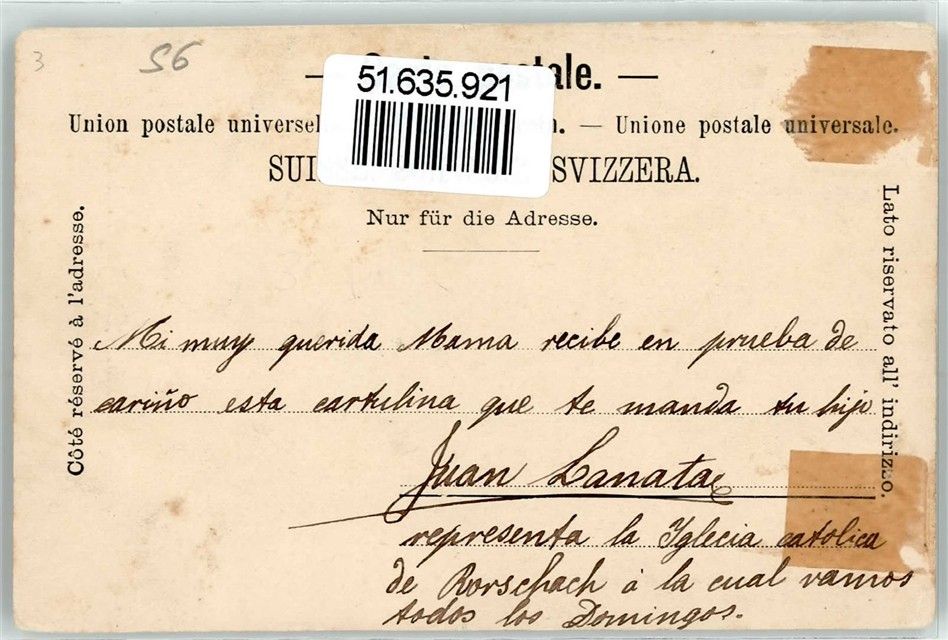 3
56
51.635.921
— ale. —
Union postale universel . — Unione postale universale.
SUI SVIZZERA.
Nur für die Adresse.
Côté réservé à l'adresse.
Lato riservato all' indirizzo.
Mi muy querida Mama recibe en prueba de
cariño esta cartulina que te manda tu hijo
Juan Lanata
representa la Iglecia catolica
de Rorschach á la cual vamos
todos los Domingos.